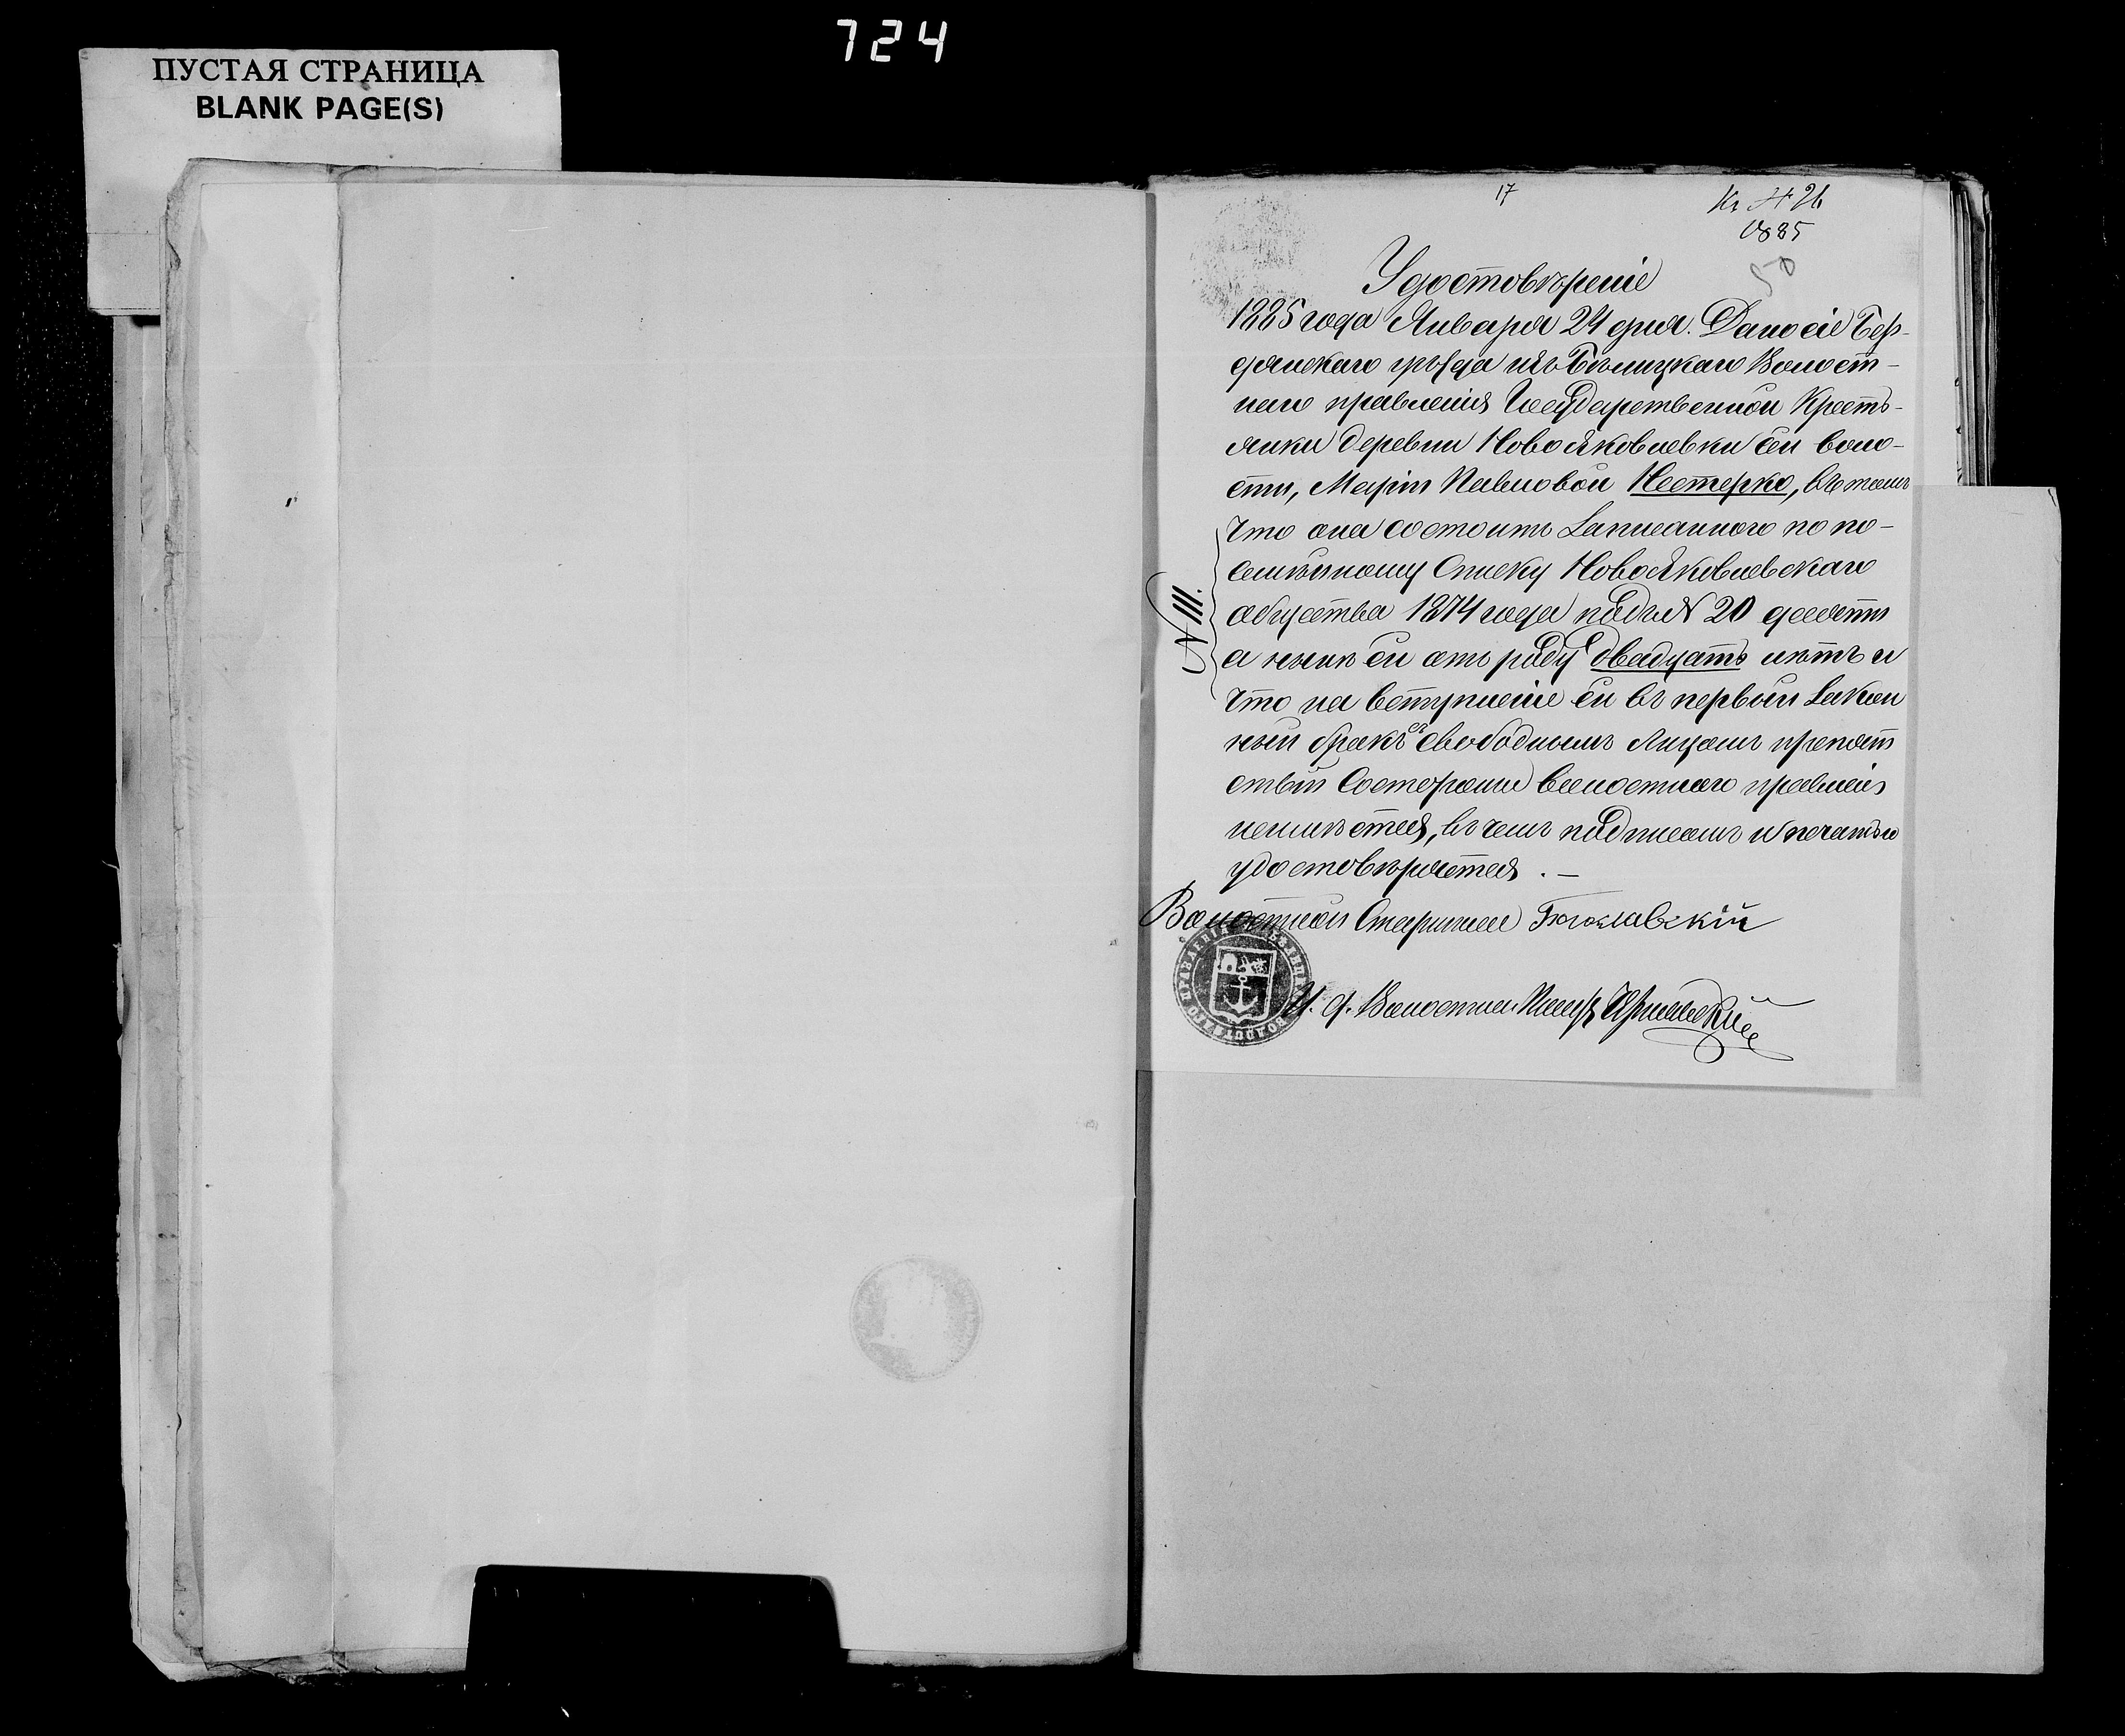 724
ПУСТАЯ СТРАНИЦА
BLANK PAGE(S)
17
Кг № 26
1885
50
Удостовѣреніе
1885 года Января 24 дня. Дано сіе Бер-
дянскаго уѣзда изъ Волост-
наго правленія Государственной Кресть-
янки деревни Новояковлевки сей воло-
сти, Маріи Павловой Нестерко, въ томъ
что она состоитъ Записанною по по-
семѣйному Списку Новояковлевскаго
общества 1874 года подъ № 20
а нынѣ ей отъ роду двадцать лѣтъ и
что на вступленіе ей въ первый Закон
ный бракъ съ свободнымъ Лицомъ препят
ствій Состороны волостного правленія
неимѣется, въ чемъ подписомъ и печатью
удостовѣряется . —
№ 111.
Волостной Старшина Богославскій
И. д. Волостнаго Писаря